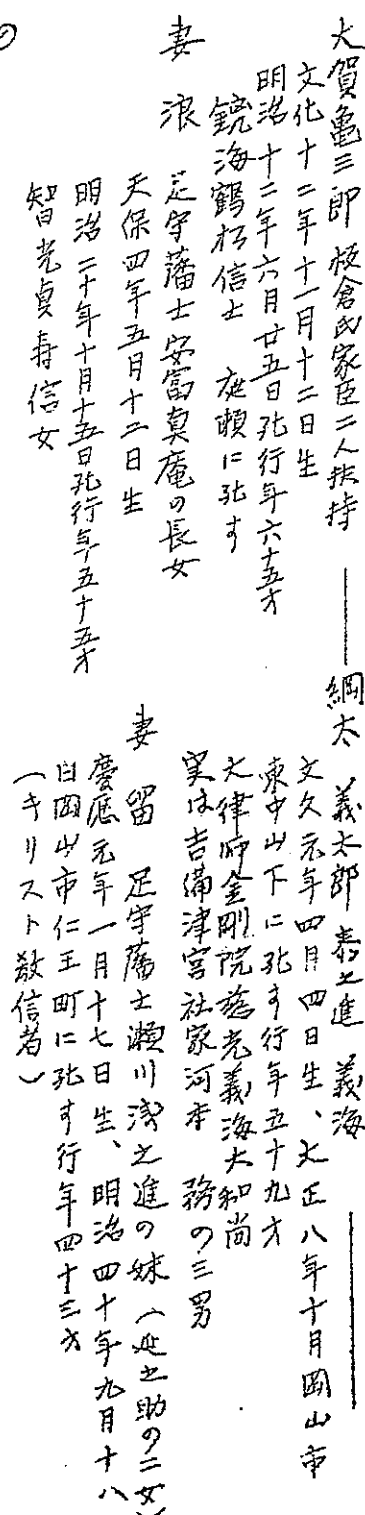 大賀亀三郎 板倉氏家臣二人扶持
文化十二年十一月十二日生
明治十二年六月廿五日死行年六十五才
鏡海鶴松信士 庭瀬に死す
妻 浪 足守藩士安富真庵の長女
天保四年五月十二日生
明治二十年十月十五日死行年五十五才
智光貞寿信女
綱太 義太郎 泰之進 義海
文久元年四月四日生、大正八年十月岡山市
東中山下に死す行年五十九才
大律師金剛院慈光義海大和尚
実は吉備津宮社家河本 務の三男
妻 留 足守藩士瀬川浅之進の妹(延之助の二女)
慶応元年一月十七日生、明治四十年九月十八
日岡山市仁王町に死す行年四十三才
(キリスト教信者)